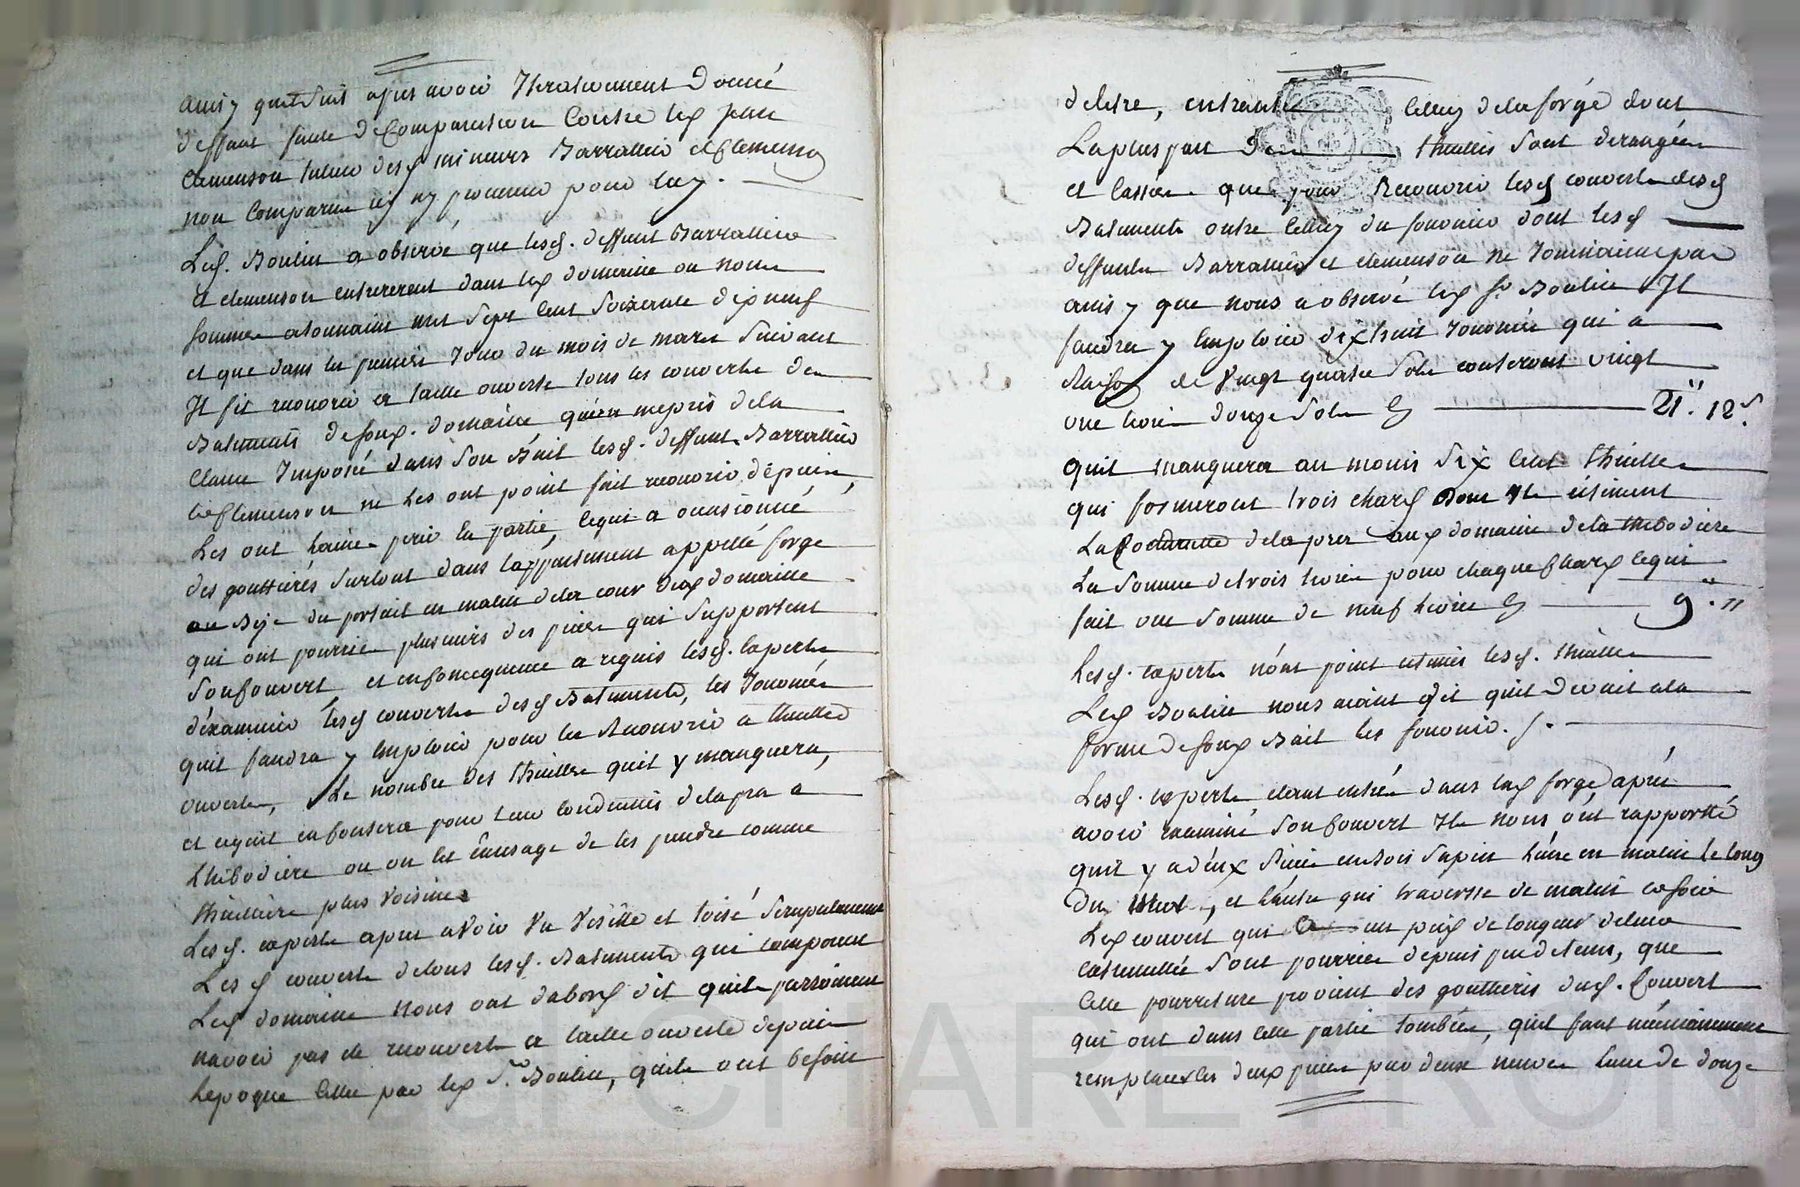 ainsy quil suit apres avoir Iterativement donné
deffaut faute de Comparution Contre led. jean
clemenson tuteur desd. mineurs Barrallier et Clemenson
non comparu ny personne pour luy.
Led. Boulin a observé que lesd. deffunt Barrallier
et clemenson entrerent dans led. domaine ou nous
sommes a la toussaint mil sept cent soixante dix neuf
et que dans les premiers jours du mois de mars suivant
Il fit recouvrir a taille ouverte tous les couverts des
Batiments de sond. domaine qu'en mepris de la
clause Imposée dans son Bail lesd. deffunts Barrallier
et Clemenson ne les ont point fait recouvrir depuis,
Les ont laissé perir en partie, ce qui a occasionné
des gouttieres surtout dans l'appartement appellé forge
au Bize du portail en matin de la cour dud. domaine
qui ont pourries plusieurs des pieces qui supportent
son Couvert, et en Consequence a requis lesd. experts
d'examiner lesd. couverts desd. Batiments, les journées
quil faudra y employer pour les Recouvrir a thuilles
ouvertes, Le nombre des thuilles quil y manquera,
et ce quil en coutera pour leur conduitte de la pra a
thibodiere ou on est en usage de les prendre comme
thuilliere plus voisine.
Lesd. experts apres avoir Vu Visitté et toisé scrupuleusement
Lesd. couverts de tous lesd. Batiments qui composent
Led. domaine nous ont dabord dit quils paroissent
navoir pas eté recouverts a taille ouverte depuis
lepoque cittée par led. Sr. Boulin, quils ont besoin
de letre, entrautre celluy de la forge dont
La plus part des thuilles sont derangées
et cassées que pour Recouvrir lesd. couverts desd.
Batiments outre celluy du fournier dont lesd.
deffunts Barrallier et clemenson ne jouissaient pas
ainsy que nous a observé led. Sr. Boulin Il
faudra y employer dix huit journées qui a
Raison de vingt quatre sols couteront vingt
une livres douze sols Cy 21.ll 12.s
quil manquera au moins six cent thuilles
qui formeront trois chars dont Ils estiment
La Voiturette de la pra aud. domaine de la thibodiere
La somme de trois livres pour chaque Char ce qui
fait une somme de neuf livres Cy 9.ll "
Lesd. experts nont point estimés lesd. thuilles
Led. Boulin nous aiant dit quil devait a la
forme de sond. Bail les fournir.
Lesd. experts etant entrés dans lad. forge apres
avoir examiné son Couvert Ils nous ont rapporté
quil y a deux pieces en bois sapin l'une en matin le long
du Mur, et lautre qui traverse de matin en soir
Led. couvert qui a un pied de longeur de leur
extremittée sont pourries depuis peu de tems, que
cette pourriture provient des gouttieres dud. Couvert
qui ont dans cette partie tombées, quil faut necessairement
remplacer les deux pieces par deux neuves lune de douze
CHAREYRON